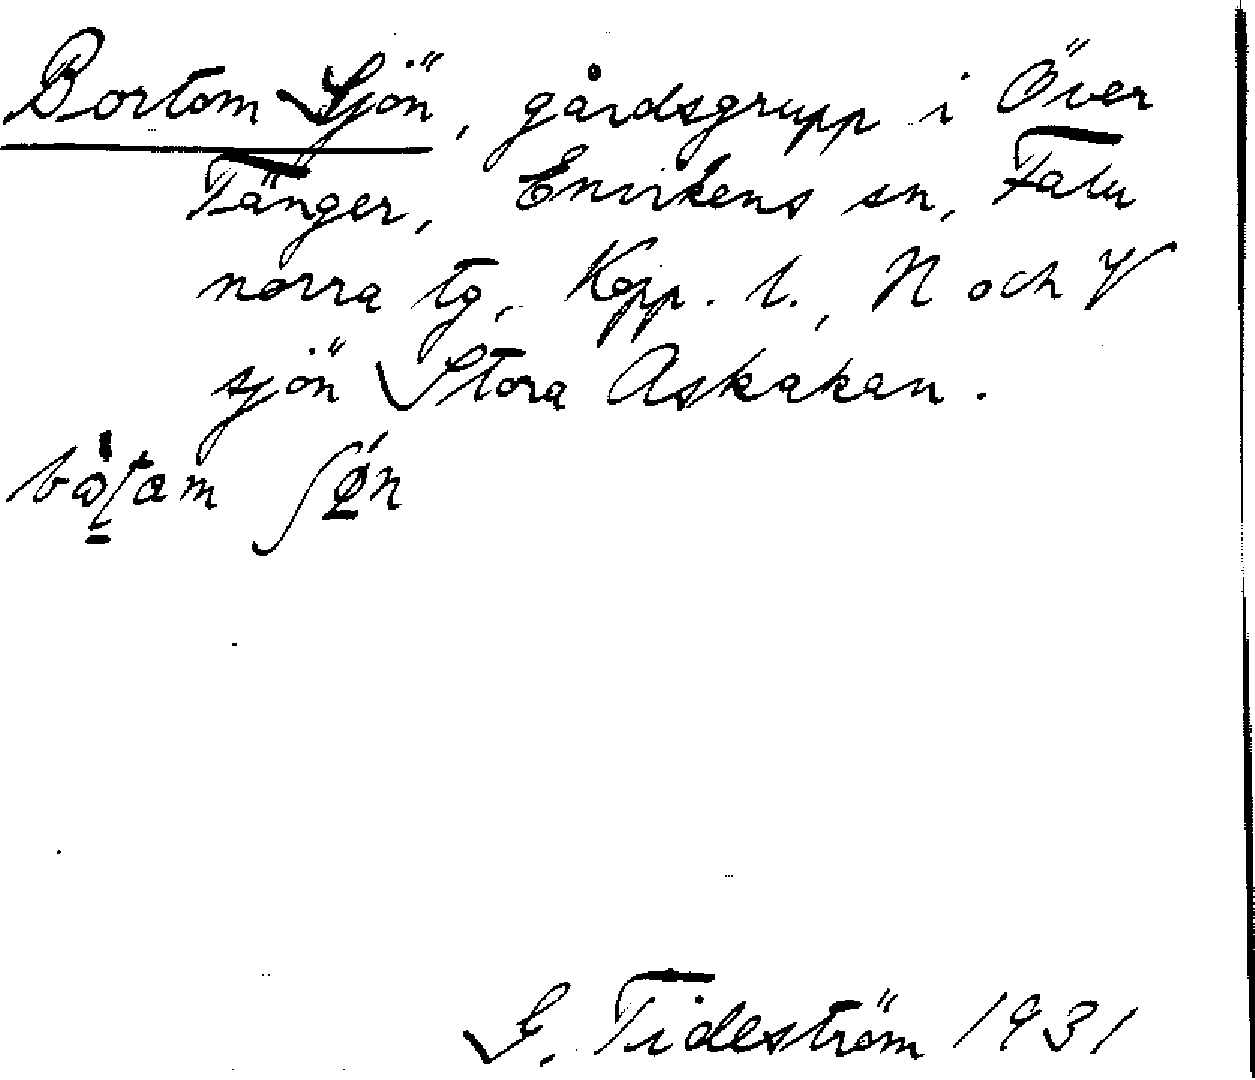 Bortom Sjön, gårdsgrupp i Över
Tänger, Envikens sn, Falu
norra tg, Kopp. l., N och V
sjön Stora Askakan.
G. Tideström 1931